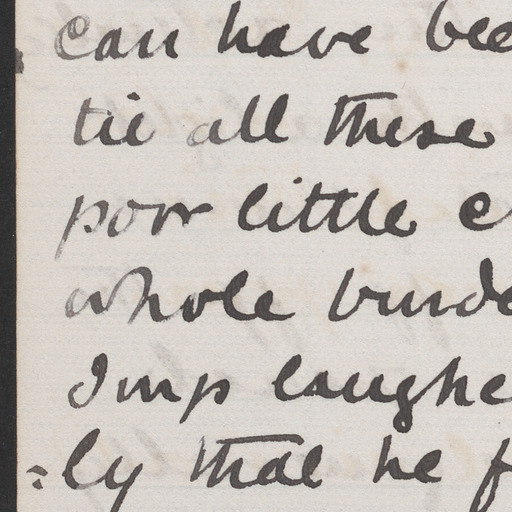 can have bee
tie all these
poor little c
whole burde
Imp laughe
=ly that he f